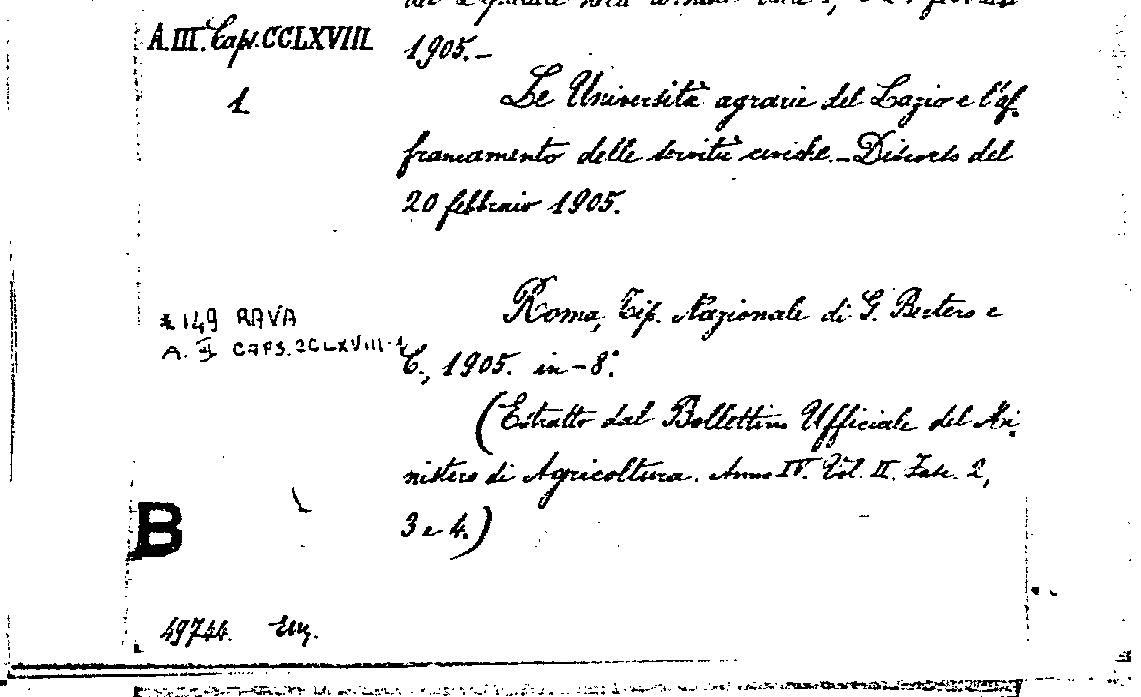 A. III. Caps. CCLXVIII
1
1905.-
Le Università agrarie del Lazio e l'af-
francamento delle servitù civiche. - Discorso del
20 febbraio 1905.
149 RAVA
A. II CAPS. 2CLXVIII-1
Roma, Tip. Nazionale di G. Bertero e
C., 1905. in-8°.
(Estratto dal Bollettino Ufficiale del Mi-
nistero di Agricoltura. Anno IV. Vol. II. Fasc. 2,
3 e 4.)
B
49744.